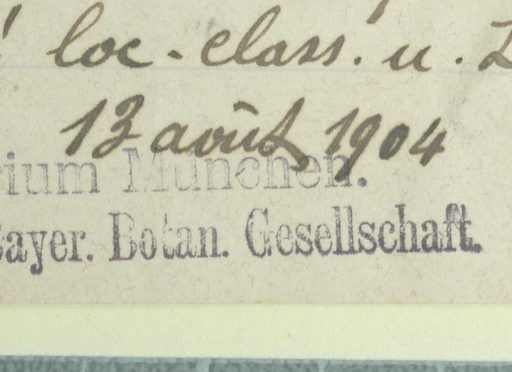 loc. class. u.
13 août 1904
München.
Bayer. Botan. Gesellschaft.